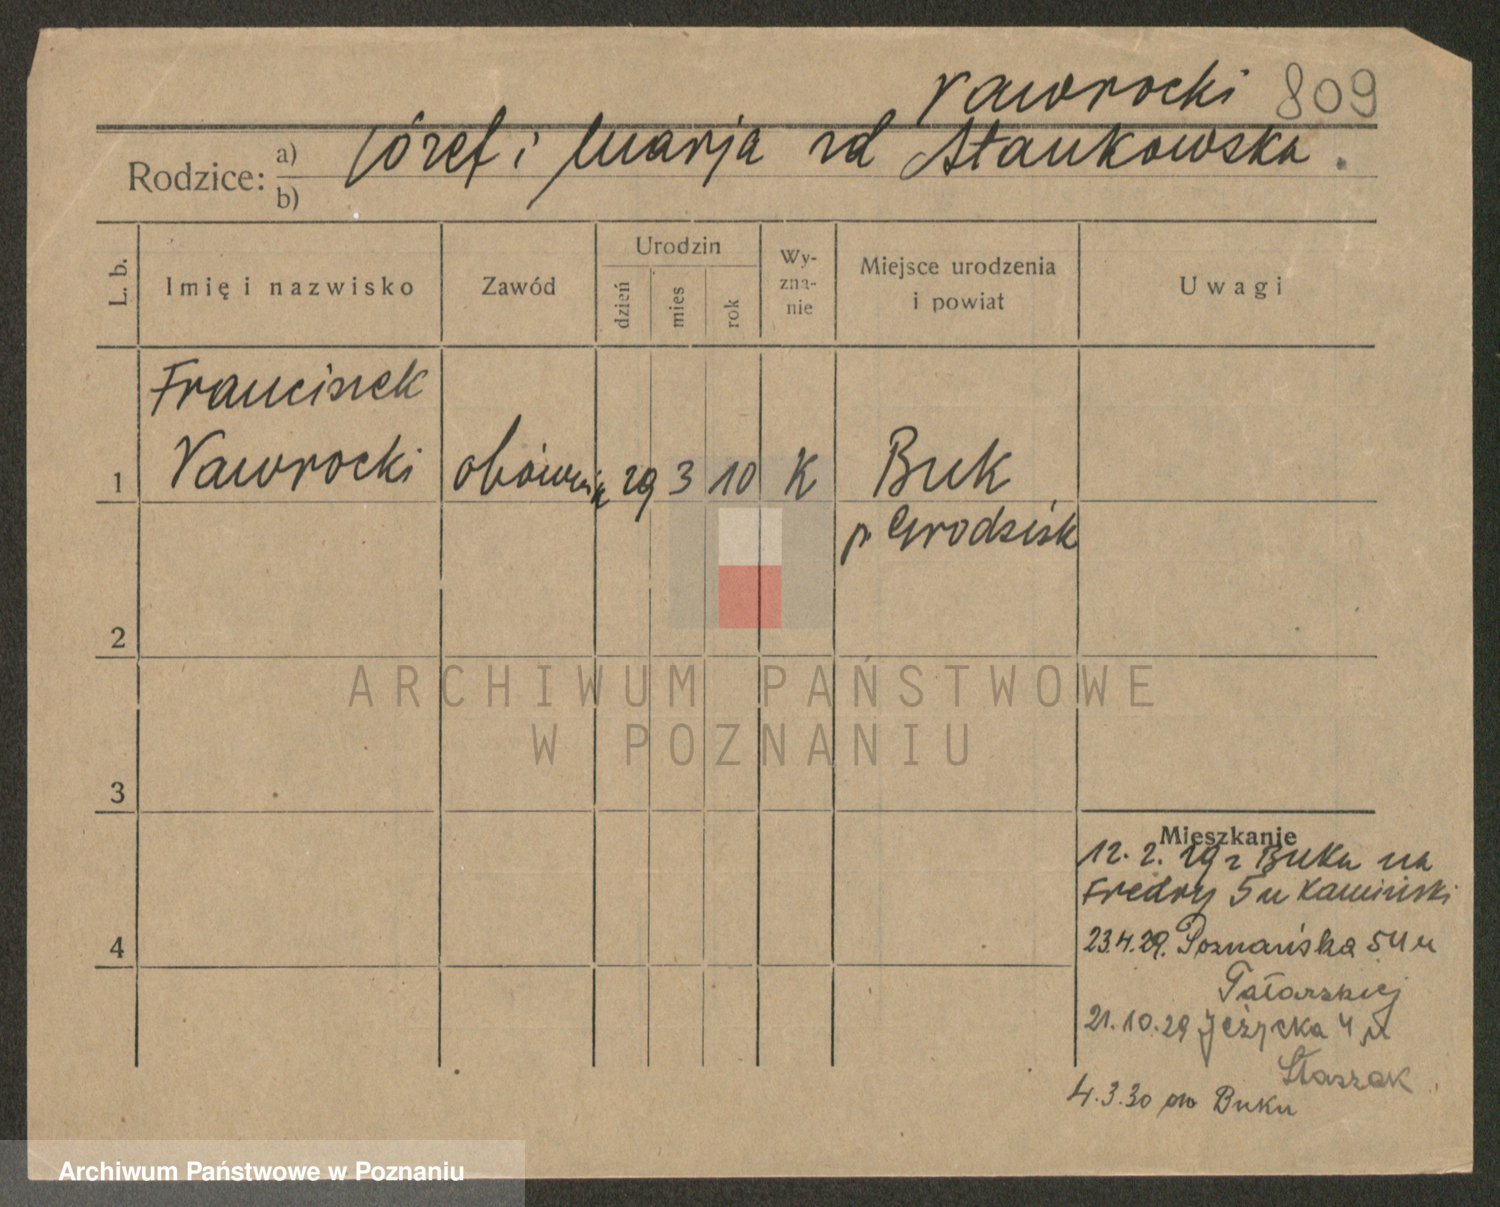 Nawrocki 809
Rodzice: a) Józef i Marja zd Stankowska.
b)
L. b.
Imię i nazwisko
Zawód
Urodzin
dzień
mies
rok
Wy-
zna-
nie
Miejsce urodzenia
i powiat
Uwagi
Franciszek
1 Nawrocki obównik 29 3 10 K Buk
p Grodzisk
2
3
4
Mieszkanie
12. 2. 29 z Buku na
Fredry 5 u Kamiński
23.4.29. Poznańska 54 u
Tatarskiej
21.10.29 Jeżycka 4 u
Staszak
4.3.30 do Buku
ARCHIWUM PAŃSTWOWE
W POZNANIU
Archiwum Państwowe w Poznaniu